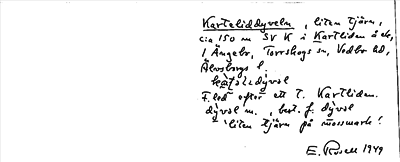 Karteliddyveln, liten tjärn,
ca 150 m SV K i Kartliden å ek,
1 Ängebr, Torrskogs sn, Vedbo hd,
Älvsborgs l.
F.led efter ett T. Kartliden.
dyvel m., best. f. dyvəl
'liten tjärn på mossmark'.
E. Rosell 1949